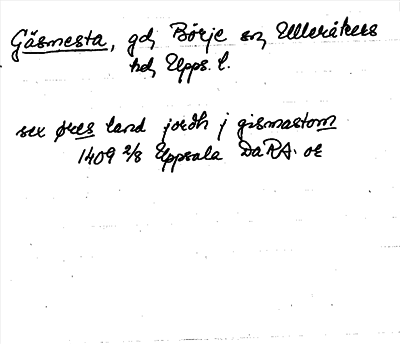 Gäsmesta, gd, Börje sn, Ulleråkers
hd, Upps. l.
sex øres land jordh j gismastom
1409 2/8 Uppsala DaRA. or